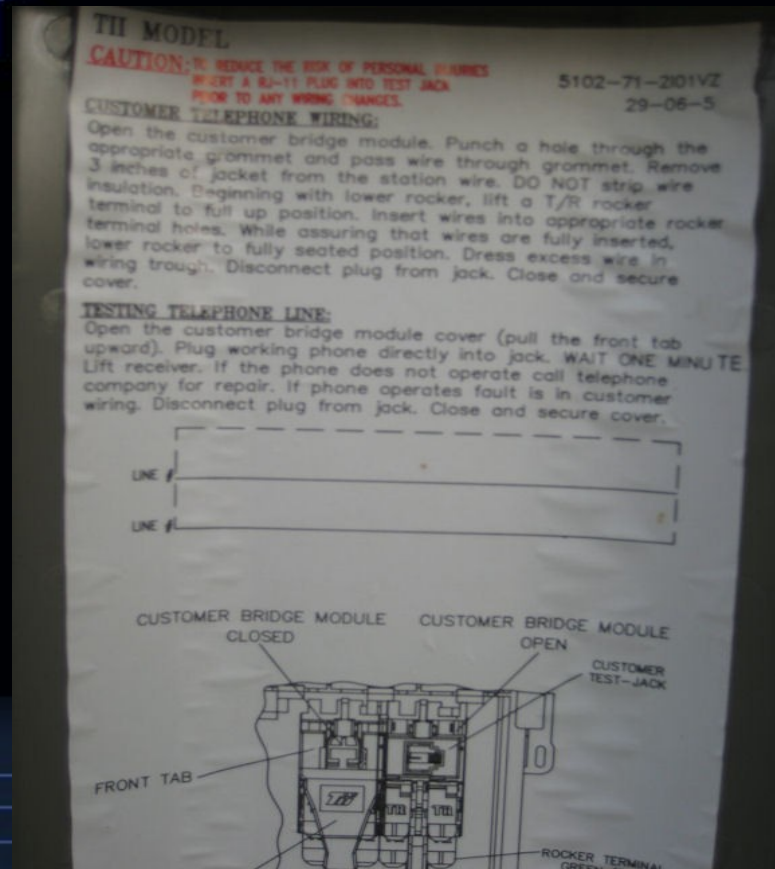 TII MODEL
CAUTION: TO REDUCE THE RISK OF PERSONAL INJURIES
INSERT A RJ-11 PLUG INTO TEST JACK
PRIOR TO ANY WIRING CHANGES.
5102-71-2I01VZ
29-06-5
CUSTOMER TELEPHONE WIRING:
Open the customer bridge module. Punch a hole through the
appropriate grommet and pass wire through grommet. Remove
3 inches of jacket from the station wire. DO NOT strip wire
insulation. Beginning with lower rocker, lift a T/R rocker
terminal to full up position. Insert wires into appropriate rocker
terminal holes. While assuring that wires are fully inserted,
lower rocker to fully seated position. Dress excess wire in
wiring trough. Disconnect plug from jack. Close and secure
cover.
TESTING TELEPHONE LINE:
Open the customer bridge module cover (pull the front tab
upward). Plug working phone directly into jack. WAIT ONE MINUTE
Lift receiver. If the phone does not operate call telephone
company for repair. If phone operates fault is in customer
wiring. Disconnect plug from jack. Close and secure cover.
LINE #
LINE #
CUSTOMER BRIDGE MODULE
CLOSED
CUSTOMER BRIDGE MODULE
OPEN
CUSTOMER
TEST-JACK
FRONT TAB
TII
TII
TII
ROCKER TERMINAL